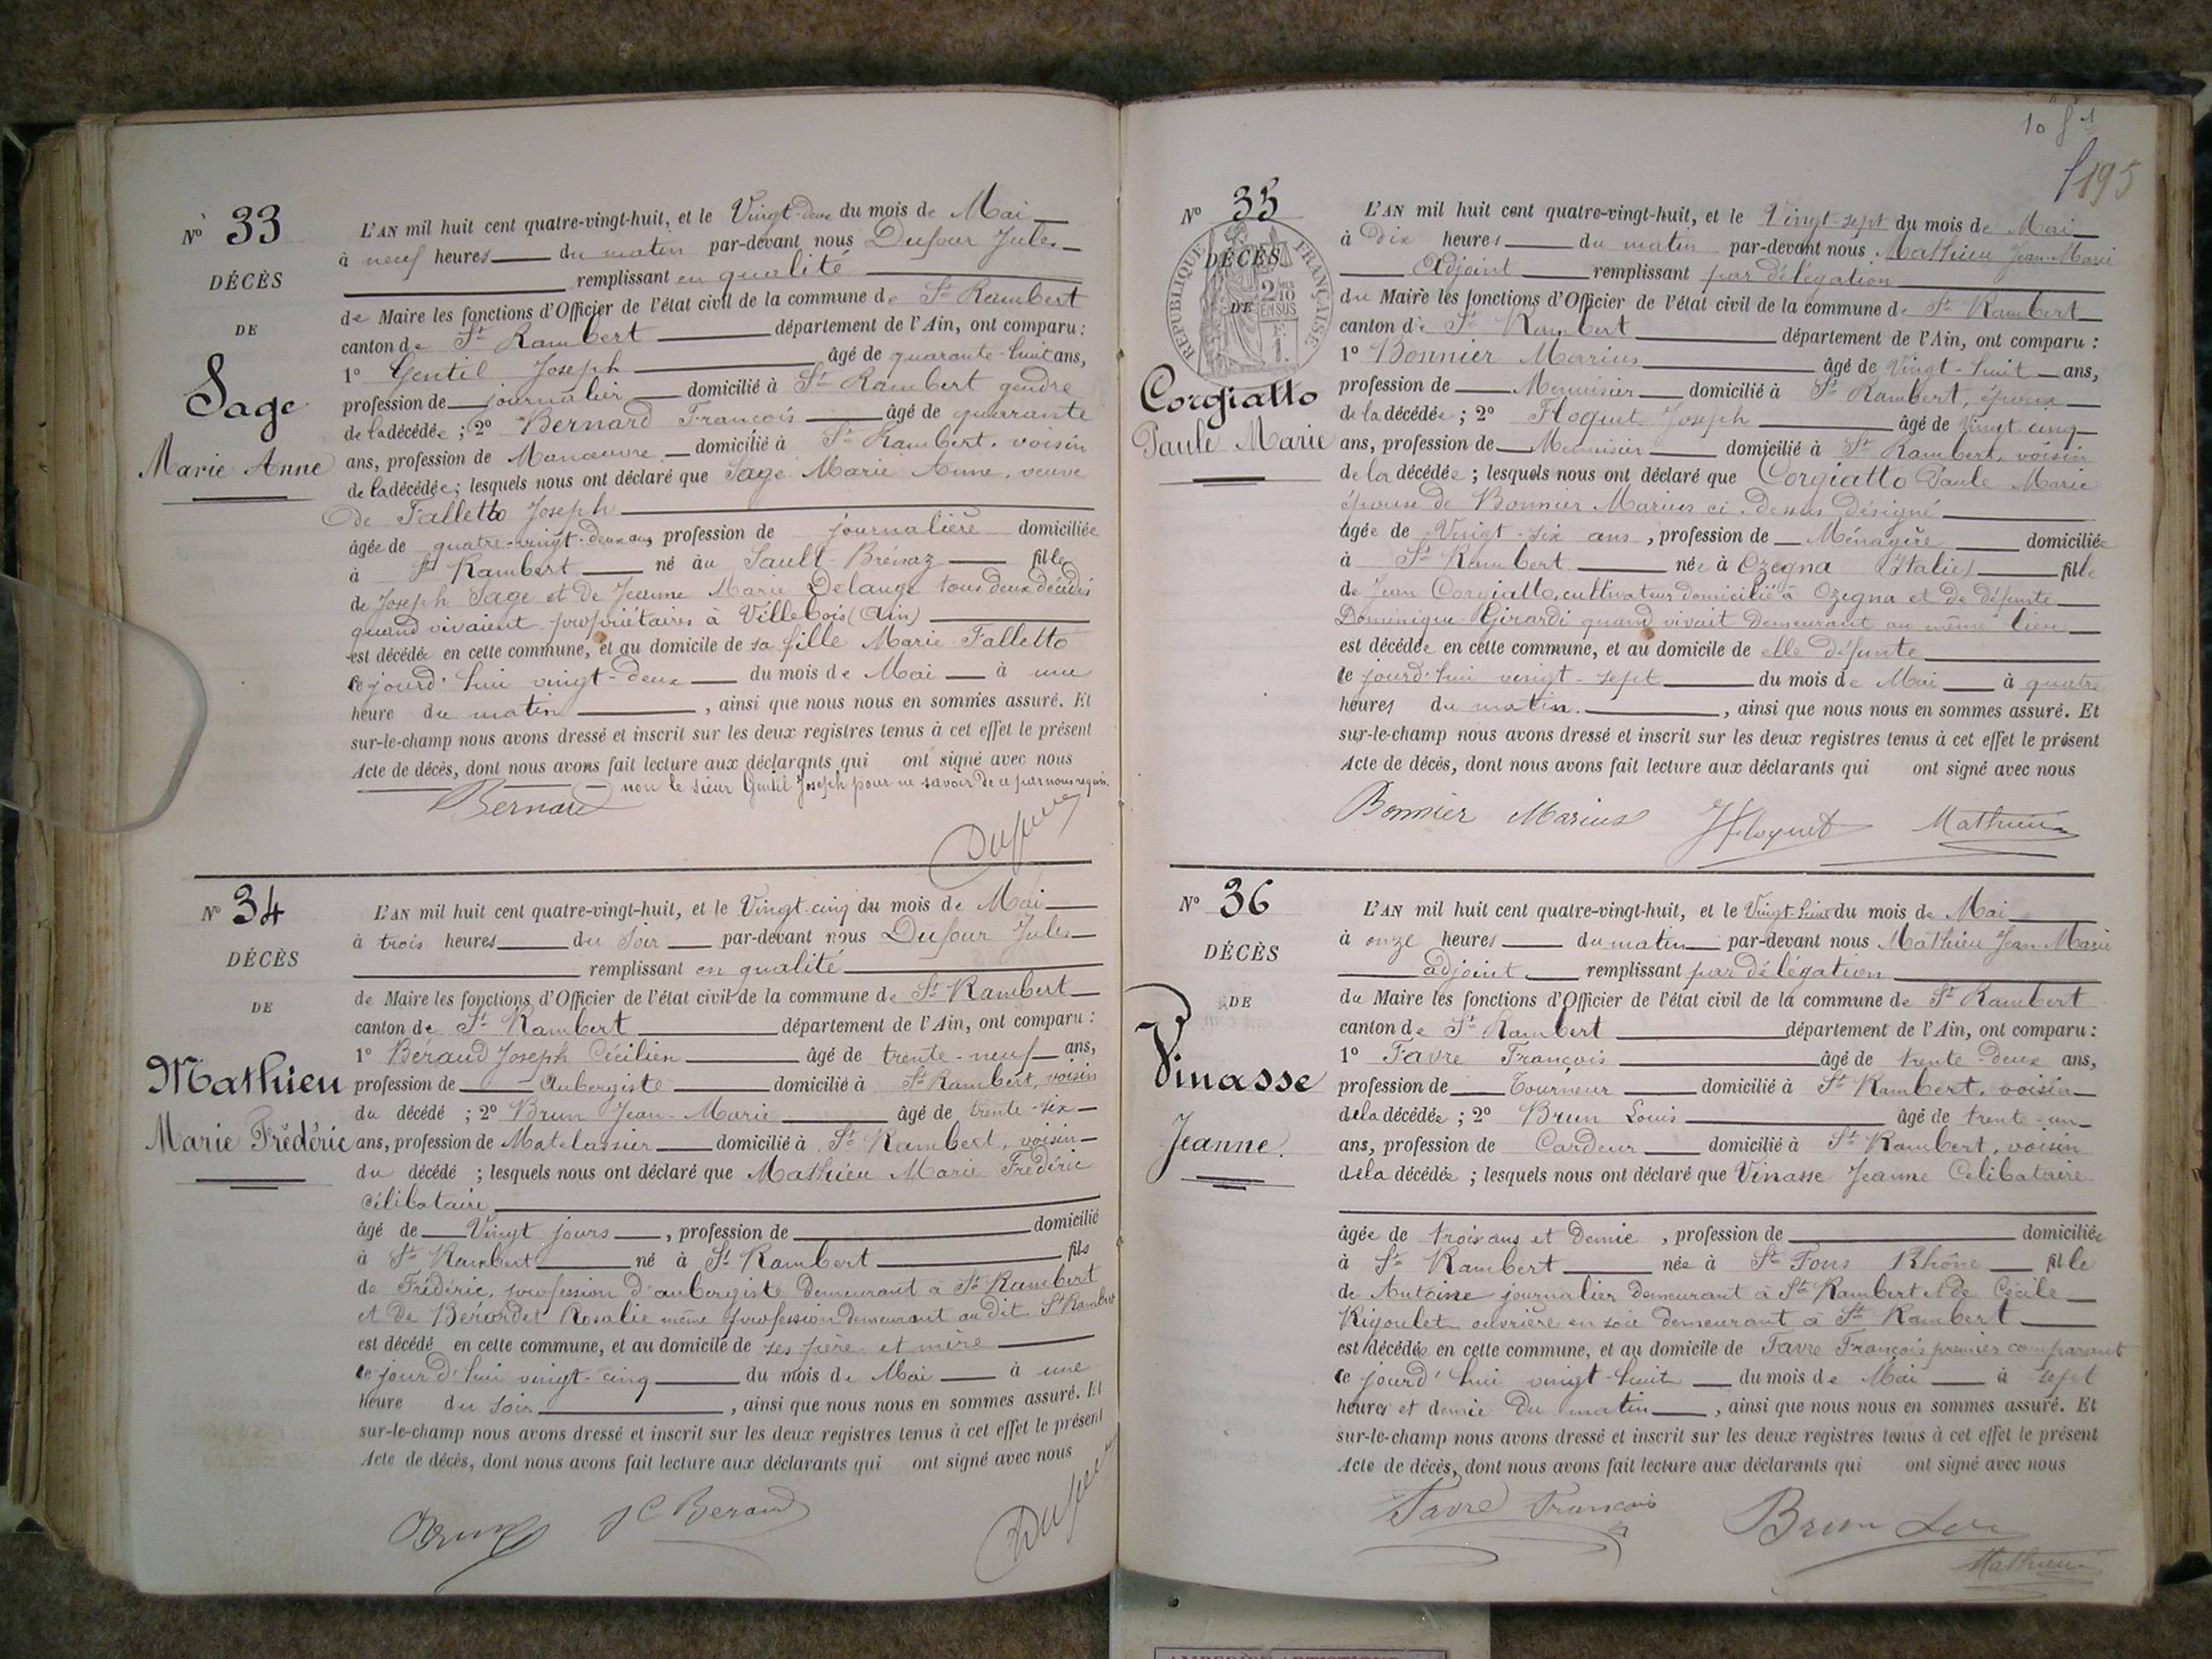 N° 33
DÉCÈS
DE
Sage
Marie Anne
L'AN mil huit cent quatre-vingt-huit, et le Vingt-deux du mois de Mai
à neuf heures du matin par-devant nous Dufour Jules
remplissant en qualité
de Maire les fonctions d'Officier de l'état civil de la commune de St Rambert
canton de St Rambert département de l'Ain, ont comparu :
1° Gentil Joseph âgé de quarante-huit ans,
profession de journalier domicilié à St Rambert gendre
de la décédée ; 2° Bernard François âgé de quarante
ans, profession de Manœuvre domicilié à St Rambert, voisin
de la décédée ; lesquels nous ont déclaré que Sage Marie Anne, veuve
de Falletto Joseph
âgée de quatre-vingt-deux ans, profession de journalière domiciliée
à St Rambert né au Sault-Brénaz fille
de Joseph Sage et de Jeanne Marie Delange tous deux décédés
quand vivaient propriétaires à Villebois (Ain)
est décédée en cette commune, et au domicile de sa fille Marie Falletto
ce jourd'hui vingt-deux du mois de Mai à une
heure du matin, ainsi que nous nous en sommes assuré. Et
sur-le-champ nous avons dressé et inscrit sur les deux registres tenus à cet effet le présent
Acte de décès, dont nous avons fait lecture aux déclarants qui ont signé avec nous
non le sieur Gentil Joseph pour ne savoir de ce par nous requis.
Bernard
Dufour
N° 34
DÉCÈS
DE
Mathieu
Marie Frédéric
L'AN mil huit cent quatre-vingt-huit, et le Vingt-cinq du mois de Mai
à trois heures du soir par-devant nous Dufour Jules
remplissant en qualité
de Maire les fonctions d'Officier de l'état civil de la commune de St Rambert
canton de St Rambert département de l'Ain, ont comparu :
1° Béraud Joseph Cécilien âgé de trente-neuf ans,
profession de Aubergiste domicilié à St Rambert, voisin
du décédé ; 2° Brun Jean-Marie âgé de trente-six
ans, profession de Matelassier domicilié à St Rambert, voisin
du décédé ; lesquels nous ont déclaré que Mathieu Marie Frédéric
célibataire
âgé de Vingt jours, profession de domicilié
à St Rambert né à St Rambert fils
de Frédéric, profession d'aubergiste demeurant à St Rambert
et de Berardet Rosalie même profession demeurant au dit St Rambert
est décédé en cette commune, et au domicile de ses père et mère
ce jourd'hui vingt-cinq du mois de Mai à une
heure du soir, ainsi que nous nous en sommes assuré. Et
sur-le-champ nous avons dressé et inscrit sur les deux registres tenus à cet effet le présent
Acte de décès, dont nous avons fait lecture aux déclarants qui ont signé avec nous
Brun JC Beraud
Dufour
195
N° 35
RÉPUBLIQUE FRANÇAISE
2/10 EN SUS
DÉCÈS
DE
Corgiatto
Paule Marie
L'AN mil huit cent quatre-vingt-huit, et le Vingt-sept du mois de Mai
à Dix heures du matin par-devant nous Mathieu Jean-Marie
Adjoint remplissant par délégation
du Maire les fonctions d'Officier de l'état civil de la commune de St Rambert
canton de St Rambert département de l'Ain, ont comparu :
1° Bonnier Marius âgé de Vingt-huit ans,
profession de Menuisier domicilié à St Rambert, époux
de la décédée ; 2° Floquet Joseph âgé de Vingt cinq
ans, profession de Menuisier domicilié à St Rambert, voisin
de la décédée ; lesquels nous ont déclaré que Corgiatto Paule Marie
épouse de Bonnier Marius ci-dessus désigné
âgée de Vingt-six ans, profession de Ménagère domiciliée
à St Rambert née à Ozegna (Italie) fille
de Jean Corgiatto, cultivateur domicilié à Ozegna et de défunte
Dominique Girardi quand vivait demeurant au même lieu
est décédée en cette commune, et au domicile de elle défunte
ce jourd'hui vingt-sept du mois de Mai à quatre
heures du matin, ainsi que nous nous en sommes assuré. Et
sur-le-champ nous avons dressé et inscrit sur les deux registres tenus à cet effet le présent
Acte de décès, dont nous avons fait lecture aux déclarants qui ont signé avec nous
Bonnier Marius JFloquet Mathieu
N° 36
DÉCÈS
DE
Vinasse
Jeanne.
L'AN mil huit cent quatre-vingt-huit, et le Vingt-huit du mois de Mai
à onze heures du matin par-devant nous Mathieu Jean-Marie
adjoint remplissant par délégation
du Maire les fonctions d'Officier de l'état civil de la commune de St Rambert
canton de St Rambert département de l'Ain, ont comparu :
1° Favre François âgé de trente-deux ans,
profession de Tourneur domicilié à St Rambert, voisin
de la décédée ; 2° Brun Louis âgé de trente-un
ans, profession de Cardeur domicilié à St Rambert, voisin
de la décédée ; lesquels nous ont déclaré que Vinasse Jeanne Célibataire
âgée de trois ans et demie, profession de domiciliée
à St Rambert née à St Fons Rhône fille
de Antoine journalier demeurant à St Rambert et de Cécile
Rigoulet ouvrière en soie demeurant à St Rambert
est décédée en cette commune, et au domicile de Favre François premier comparant
ce jourd'hui vingt-huit du mois de Mai à sept
heures et demie du matin, ainsi que nous nous en sommes assuré. Et
sur-le-champ nous avons dressé et inscrit sur les deux registres tenus à cet effet le présent
Acte de décès, dont nous avons fait lecture aux déclarants qui ont signé avec nous
Favre François Brun
Mathieu